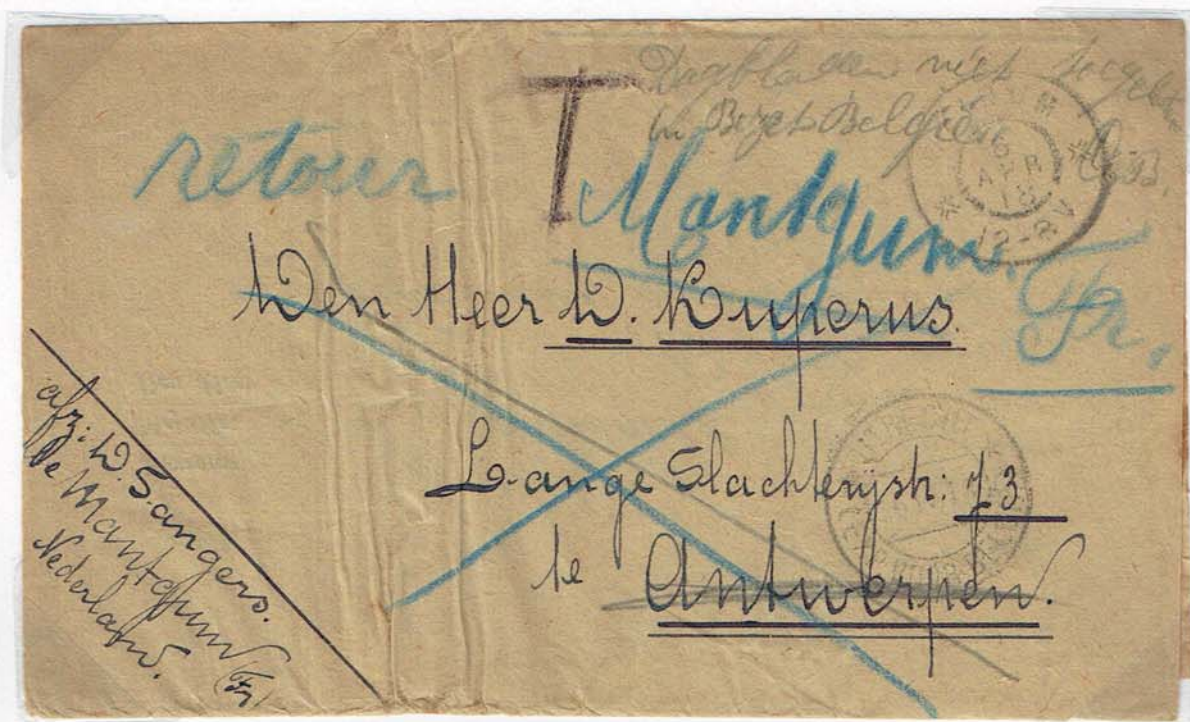 Dagbladen niet
in Bezet België
T
retour Mantgum.
Fr.
6
APR
18
12-2V
Den Heer D. Kuperus.
Lange Slachterijstr: 73
te Antwerpen.
afz: D. Sangers.
te Mantgum (Fr)
Nederland.